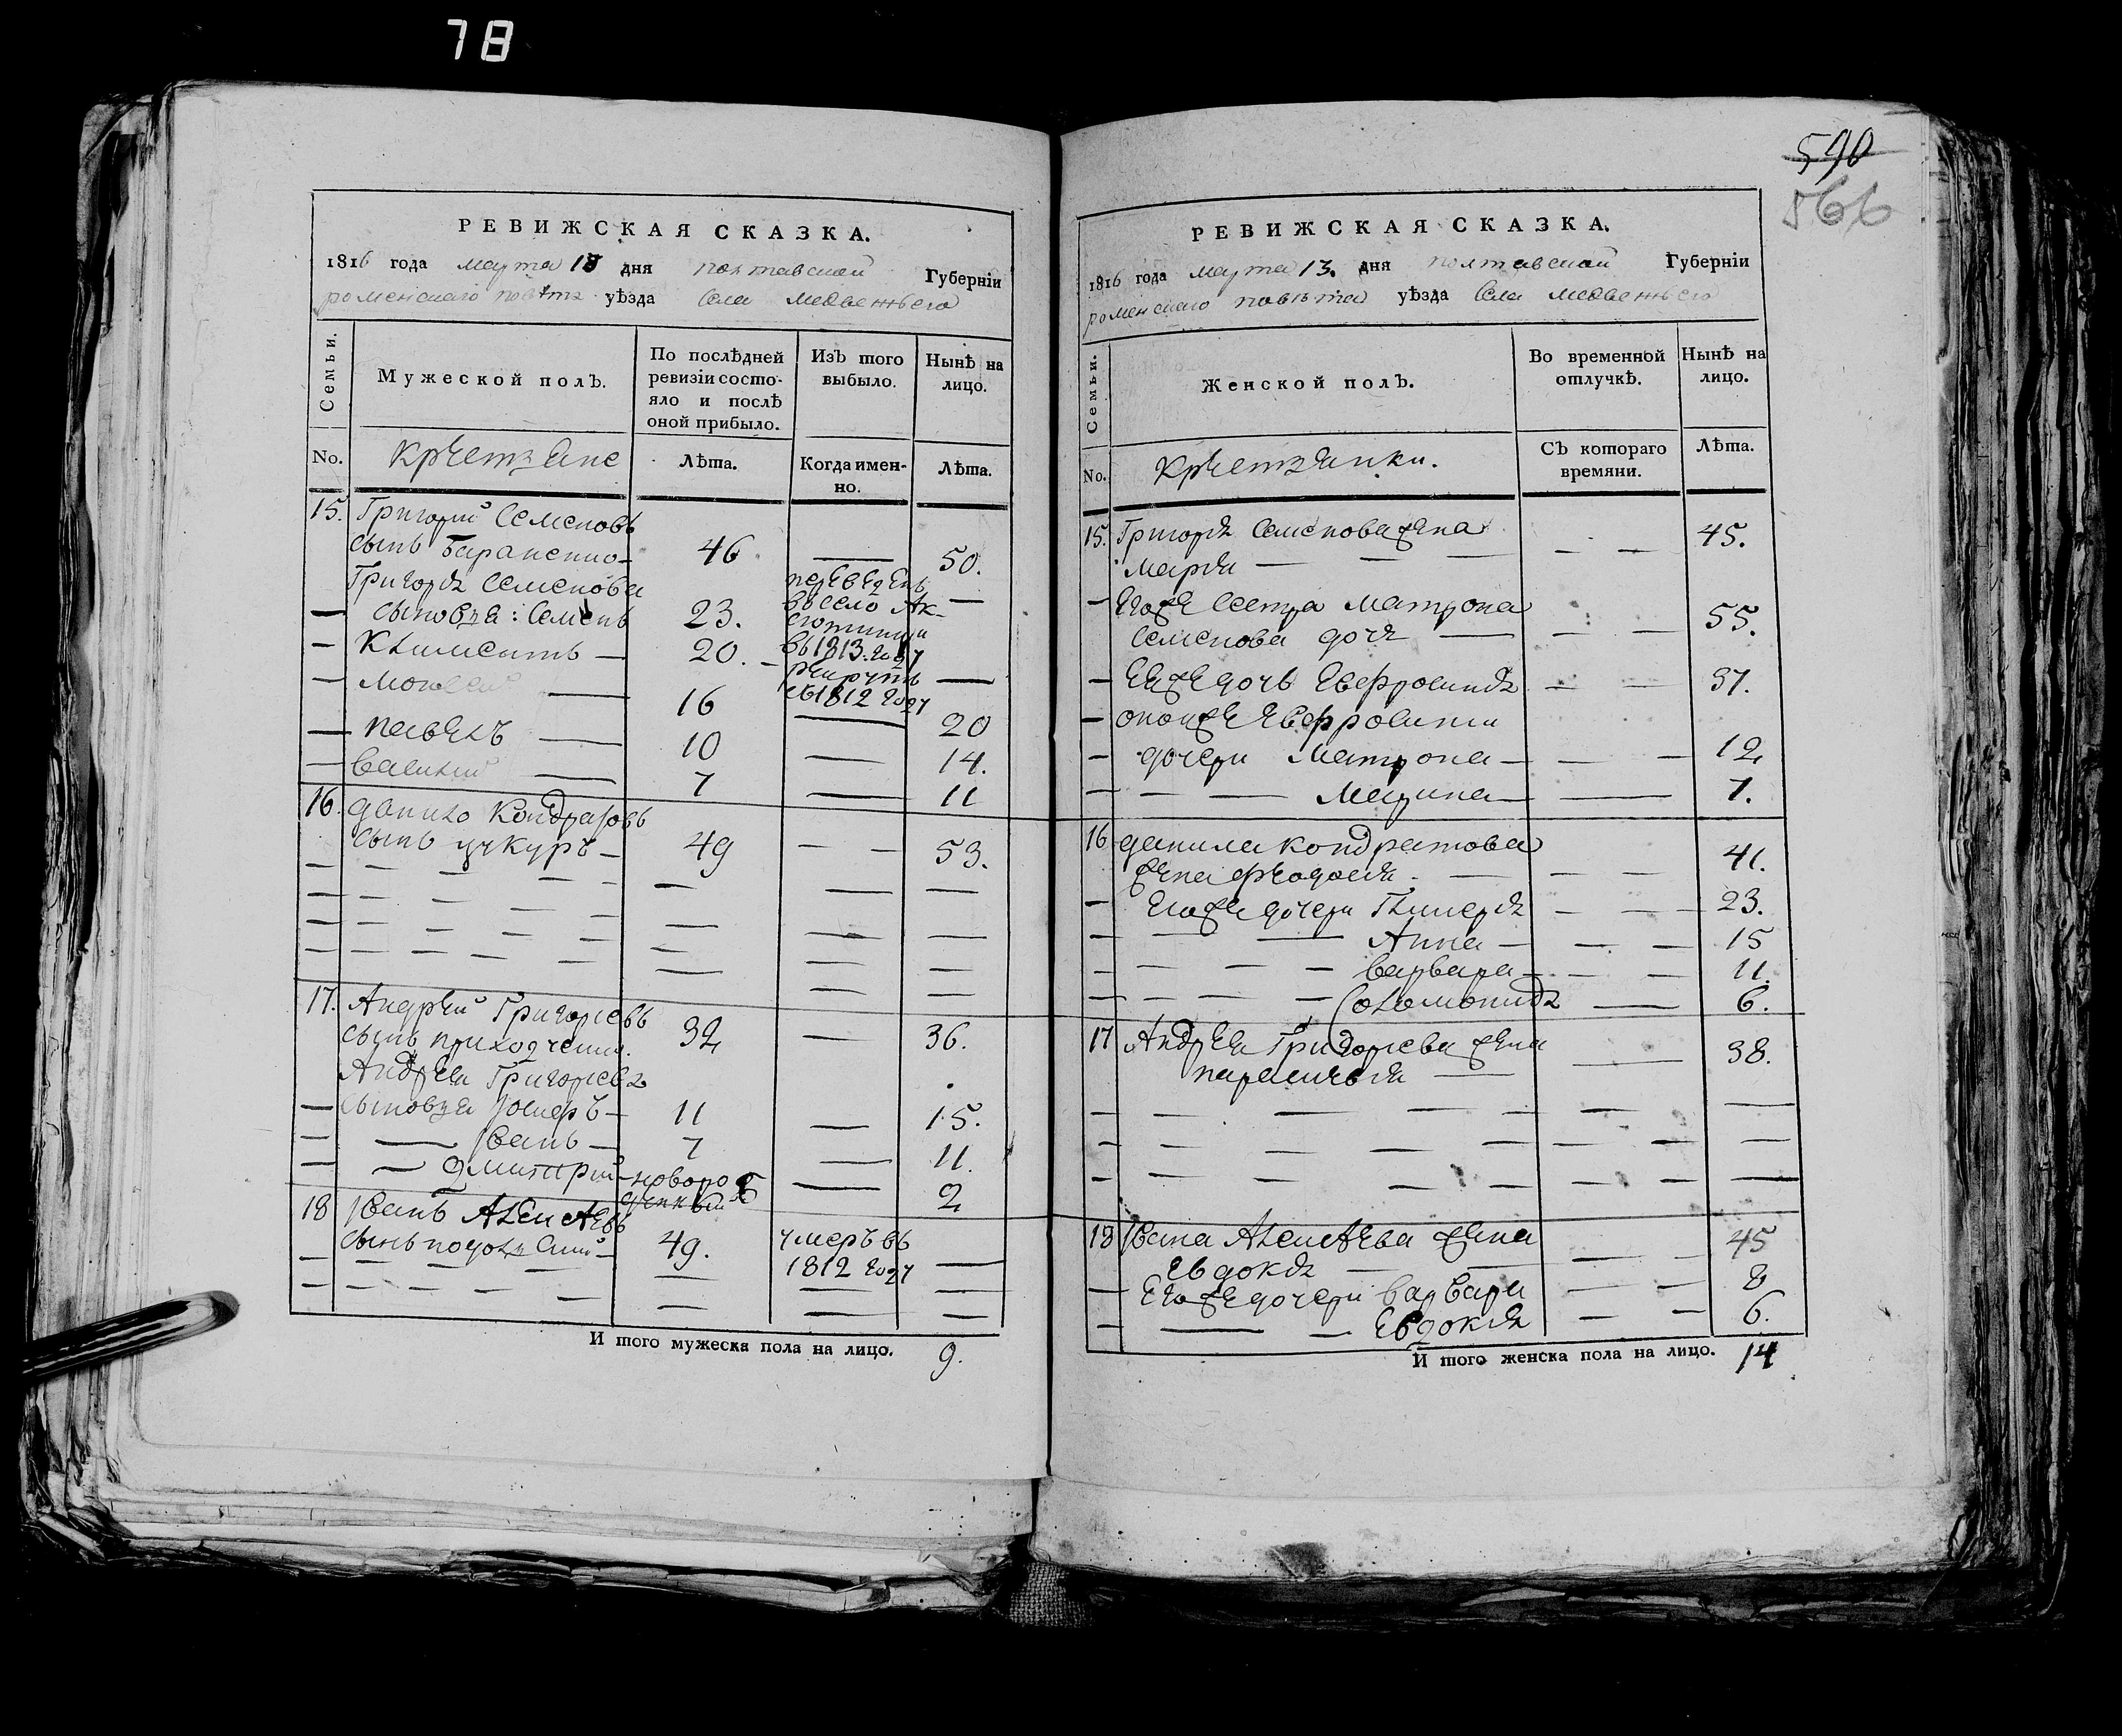 78
590
566
РЕВИЖСКАЯ СКАЗКА.
1816 года марта 13 дня полтавской Губерніи
роменскаго повѣта уѣзда села медвежьего
Семьи.
Мужеской полъ.
По послѣдней ревизіи состо-
яло и послѣ
оной прибыло.
Изъ того
выбыло.
Нынѣ на
лицо.
No.
крестьяне
Лѣта.
Когда имен-
но.
Лѣта.
15. Григорій Семеновъ
сынъ Бараненко 46 50.
Григоря Семенова
сыновья: Семенъ 23. переведенъ въ село
в 1813 году
Климентъ 20. рекрутъ
въ 1812 году
Моисей 16 20
павелъ 10 14.
василий 7 11
16. данило Кондратовъ
сынъ учкуръ 49 53.
17. Андрей Григориевъ
сынъ приходченко. 32 36.
Андрея Григориева
сыновья Иосиръ 11 15.
Иванъ 7 11.
дмитрий новорож
денный 2
18 Иванъ Алексѣевъ
сынъ 49. умеръ въ
1812 году
И того мужеска пола на лицо. 9.
РЕВИЖСКАЯ СКАЗКА.
1816 года марта 13. дня полтавской Губерніи
роменскаго повѣта уѣзда села медвежьего
Семьи.
Женской полъ.
Во временной
отлучкѣ.
Нынѣ на
лицо.
No.
крестьянки.
Съ котораго
времяни.
Лѣта.
15. Григоря Семенова жена
марья 45.
Его же сестра матрона
Семенова дочь 55.
Ея же дочь Евфросиня 37.
оной же Евфросини
дочери матрона 12
марина 7.
16 данила кондратова
жена феодосия 41.
Его же дочери Гликеря 23.
Анна 15
варвара 11.
Соломония 6.
17 Андрея Григориева жена
парасковья 38.
18 Ивана Алексѣева жена
Евдокя 45
Его же дочери варвара 8
Евдокия 6.
И того женска пола на лицо. 14